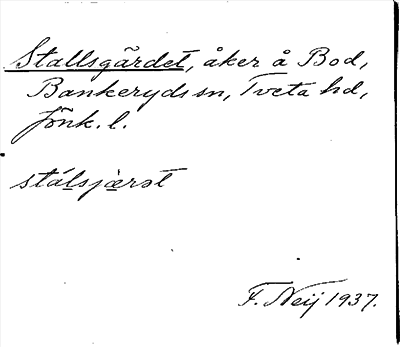 Stallsgärdet, åker å Bod,
Bankeryds sn, Tveta hd,
Jönk. l.
stálsjærət
F. Neij 1937.